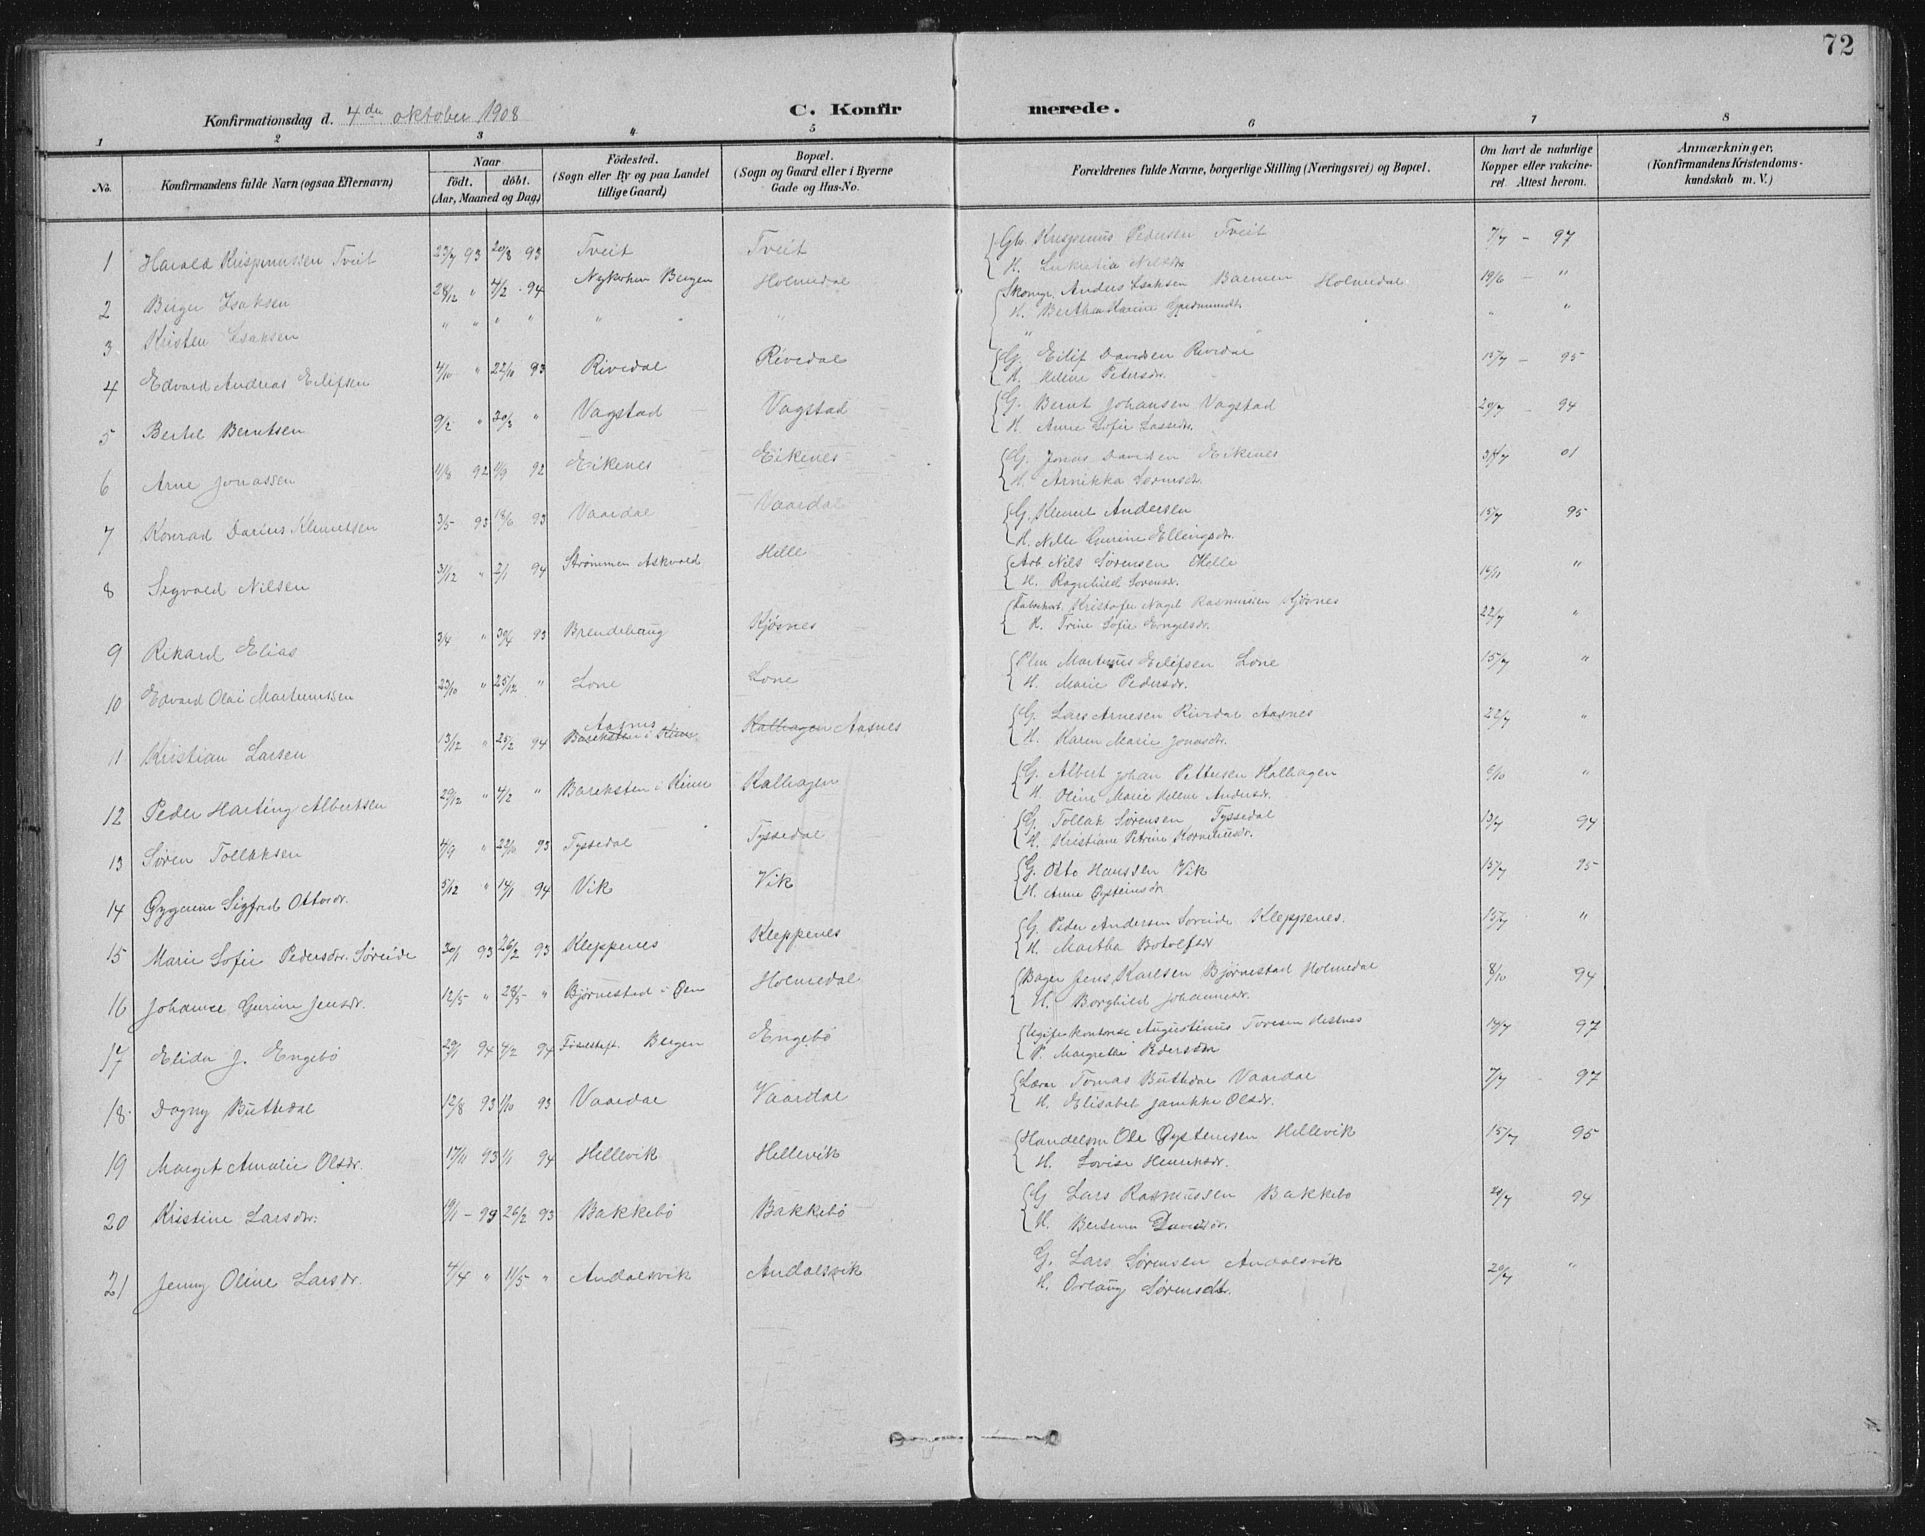 72
Konfirmationsdag d. 4de oktober 1908
C. Konfirmerede.
1 2 3 4 5 6 7 8
No.
Konfirmandens fulde Navn (ogsaa Efternavn)
Naar
födt. döbt.
(Aar, Maaned og Dag)
Födested.
(Sogn eller By og paa Landet
tillige Gaard)
Bopæl.
(Sogn og Gaard eller i Byerne
Gade og Hus-No.
Forældrenes fulde Navne, borgerlige Stilling (Næringsvei) og Bopæl.
Om havt de naturlige
Kopper eller vakcine-
ret. Attest herom.
Anmærkninger,
(Konfirmandens Kristendoms-
kundskab m. V.)
1 Harald Krispinussen Tveit 23/7 93 20/8 93 Tveit Tveit Gbr. Krispinus Pedersen Tveit 7/7 - 97
H. Lukretia Nilsdr.
2 Berger Isaksen 28/12 " 4/2 - 94 Nykirken Bergen Holmedal Skomgr. Anders Isaksen Holmedal 19/6 - "
H. Berthe Karine
3 Kristen Isaksen " " " " " " " " "
4 Edvard Andreas Eilifsen 4/10 " 22/10 93 Rivedal Rivedal G. Eilif Davidsen Rivedal 15/7 - 95
H. Heline Petersdr.
5 Bertel Berntsen 9/2 " 30/3 " Vagstad Vagstad G. Bernt Johansen Vagstad 20/7 - 94
H. Anne Sofie Lassedr.
6 Arne Jonassen 11/8 92 92 Eikenes Eikenes G. Jonas Davidsen Eikenes 01
H. Arnikka
7 Konrad Darius Klemetsen 3/5 93 18/6 93 Vaardal Vaardal G. Klemet Andersen 15/7 95
H. Nille Gurine Ellingsdr.
8 Sigvald Nilsen 31/12 " 2/1 94 Strømmen Askvold Helle Arb. Nils Sørensen Helle "
H. Ragnhild Sørensdr.
9 Rikard Elias 3/4 " 30/4 93 Brendehaug Kjøsnes Kristofer Nagel Rasmussen Kjøsnes 22/7 "
H. Trine Sofie Engelsdr.
10 Edvard Olai Martinussen 23/10 " 25/12 " Lone Lone Plm Martinus Eilifsen Lone 15/7 "
H. Marie Pedersdr.
11 Kristian Larsen 13/12 " 25/2 94 Aasnes Bareksten i Kinn Kalhagen Aasnes G. Lars Arnesen Rivedal Aasnes 22/7 "
H. Karen Marie Jonasdr.
12 Peder Harting Albertsen 29/12 " 4/2 " Bareksten i Kinn Kalhagen G. Albert Johan Pettersen Kalhagen 6/10 "
H. Oline Marie Helene Andersdr.
13 Søren Tollaksen 4/9 " 22/10 93 Tyssedal Tyssedal G. Tollak Sørensen Tyssedal 13/7 94
H. Kristiane Petrine Korneliusdr.
14 Sigfrid Ottosdr. 5/12 " 14/1 94 Vik Vik G. Otto Hanssen Vik 15/7 95
H. Anne Øysteinsdr
15 Marie Sofie Pedersdr. Søreide 30/1 93 26/2 93 Kleppenes Kleppenes G. Peder Andersen Søreide Kleppenes. 15/7 "
H. Martha Botolfsdr
16 Johanne Gurine Jensdr. 12/5 " 28/5 " Bjørnestad i Øen Holmedal Bager Jens Karlsen Bjørnestad Holmedal 8/10 94
H. Borghild Johannesdr.
17 Elida J. Engebø 29/1 94 4/2 94 Fødselsst. Bergen Engebø Ugifte Augustinus Toresen Hestnes 97
P. Margrethe Pedersdtr
18. Dagny Buttedal 12/8 93 1/10 93 Vaardal Vaardal Lærer Tomas Buttedal Vaardal 7/7 97
H. Elisabet Jamikke Olsdr.
19 Margit Amalie Olsdr. 17/11 93 1/1 94 Hellevik Hellevik Handelsm Ole Øysteinsen Hellevik 15/7 95
H. Lovise Henriksdr.
20 Kristine Larsdtr. 19/1 - 93 26/2 93 Bakkebø Bakkebø G. Lars Rasmussen Bakkebø 20/7 94
H. Bertine Davidsdr.
21 Jenny Oline Larsdr. 4/4 " 11/5 " Andalsvik Andalsvik G. Lars Sørensen Andalsvik 20/7 "
H. Orlaug Sørensdt.